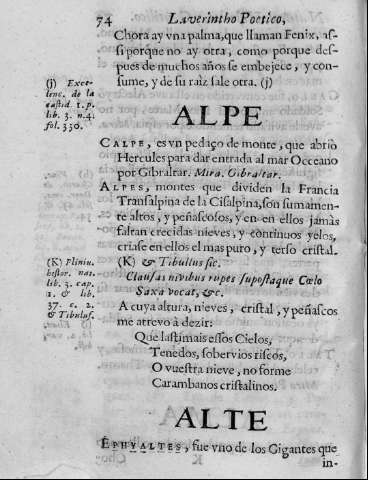 74 Laverintho Poetico,
Chora ay vna palma, que llaman Fenix, as-
si porque no ay otra, como porque des-
pues de muchos años se embejece, y con-
sume, y de su raìz sale otra. (j)
(j) Exce-
lenc. de la
castid. 1. p.
lib. 3. n. 4.
fol. 330.
ALPE
CALPE, es vn pedaço de monte, que abriò
Hercules para dar entrada al mar Occeano
por Gibraltar. Mira. Gibraltar.
ALPES, montes que dividen la Francia
Transalpina de la Cisalpina, son sumamen-
te altos, y peñascosos, y en en ellos jamàs
faltan crecidas nieves, y continuos yelos,
criase en ellos el mas puro, y terso cristal.
(K) & Tibullus sic.
Clausas nivibus rupes supostaque Cœlo
Saxa vocat, &c.
(K) Pliniu.
histor. nat.
lib. 3. cap.
1. & lib.
37. c. 2.
& Tibulus.
A cuya altura, nieves, cristal, y peñascos
me atrevo à dezir:
Que lastimais essos Cielos,
Tenedos, sobervios riscos,
O vuestra nieve, no forme
Carambanos cristalinos.
ALTE
EPHYALTES, fue vno de los Gigantes que
in-